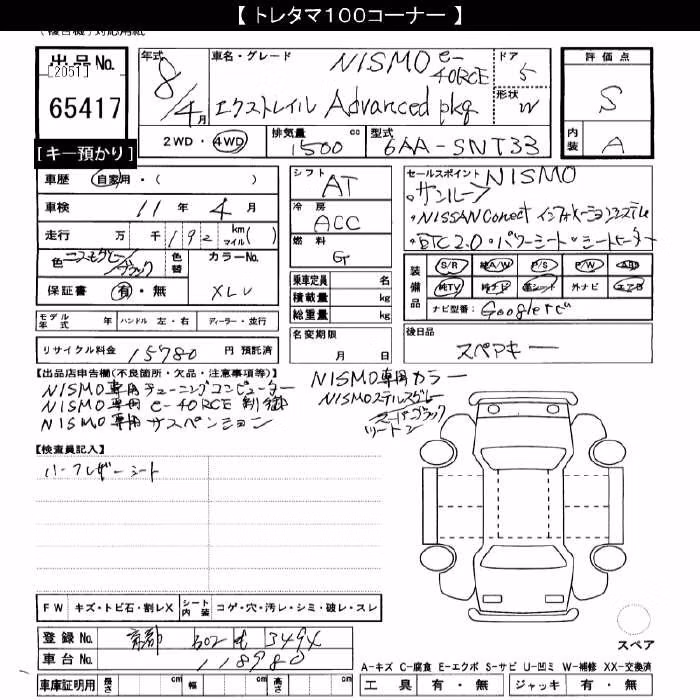 【 トレタマ100コーナー 】
出品No.
[2051]
65417
[キー預かり]
年式 8/4月
車名・グレード NISMO e-4ORCE
エクストレイル Advanced pkg
ドア 5
形状 W
評価点 S
内装 A
2WD・4WD
排気量 1500 cc
型式 6AA-SNT33
車歴 自家用・( )
車検 11年 4月
走行 万 千 192 km マイル( )
色 ニスモグレー/ブラック
色替
カラーNo. XLV
保証書 有・無
モデル年式 年 ハンドル 左・右 ディーラー・並行
リサイクル料金 15780 円 預託済
シフト AT
冷房 ACC
燃料 G
乗車定員 名
積載量 kg
総重量 kg
名変期限 月 日
セールスポイント NISMO
・サンルーフ
・NISSAN Conect インフォメーションシステム
・ETC2.0 ・パワーシート ・シートヒーター
装備品
S/R A/W P/S P/W
純TV 純ナビ 革シート 外ナビ エアB
ナビ型番:
後日品
スペアキー
【出品店申告欄(不良箇所・欠品・注意事項等)】
NISMO専用チューニングコンピューター
NISMO専用 e-4ORCE 制御
NISMO専用サスペンション
NISMO専用カラー
NISMOステルスグレー
スーパーブラック
ツートン
【検査員記入】
ハーフレザーシート
FW キズ・トビ石・割レX シート内装 コゲ・穴・汚レ・シミ・破レ・スレ
登録No. 京都 302 3494
車台No. 118980
車庫証明用 長さ cm 幅 cm 高さ cm
スペア
A-キズ C-腐食 E-エクボ S-サビ U-凹ミ W-補修 XX-交換済
工具 有・無 ジャッキ 有・無